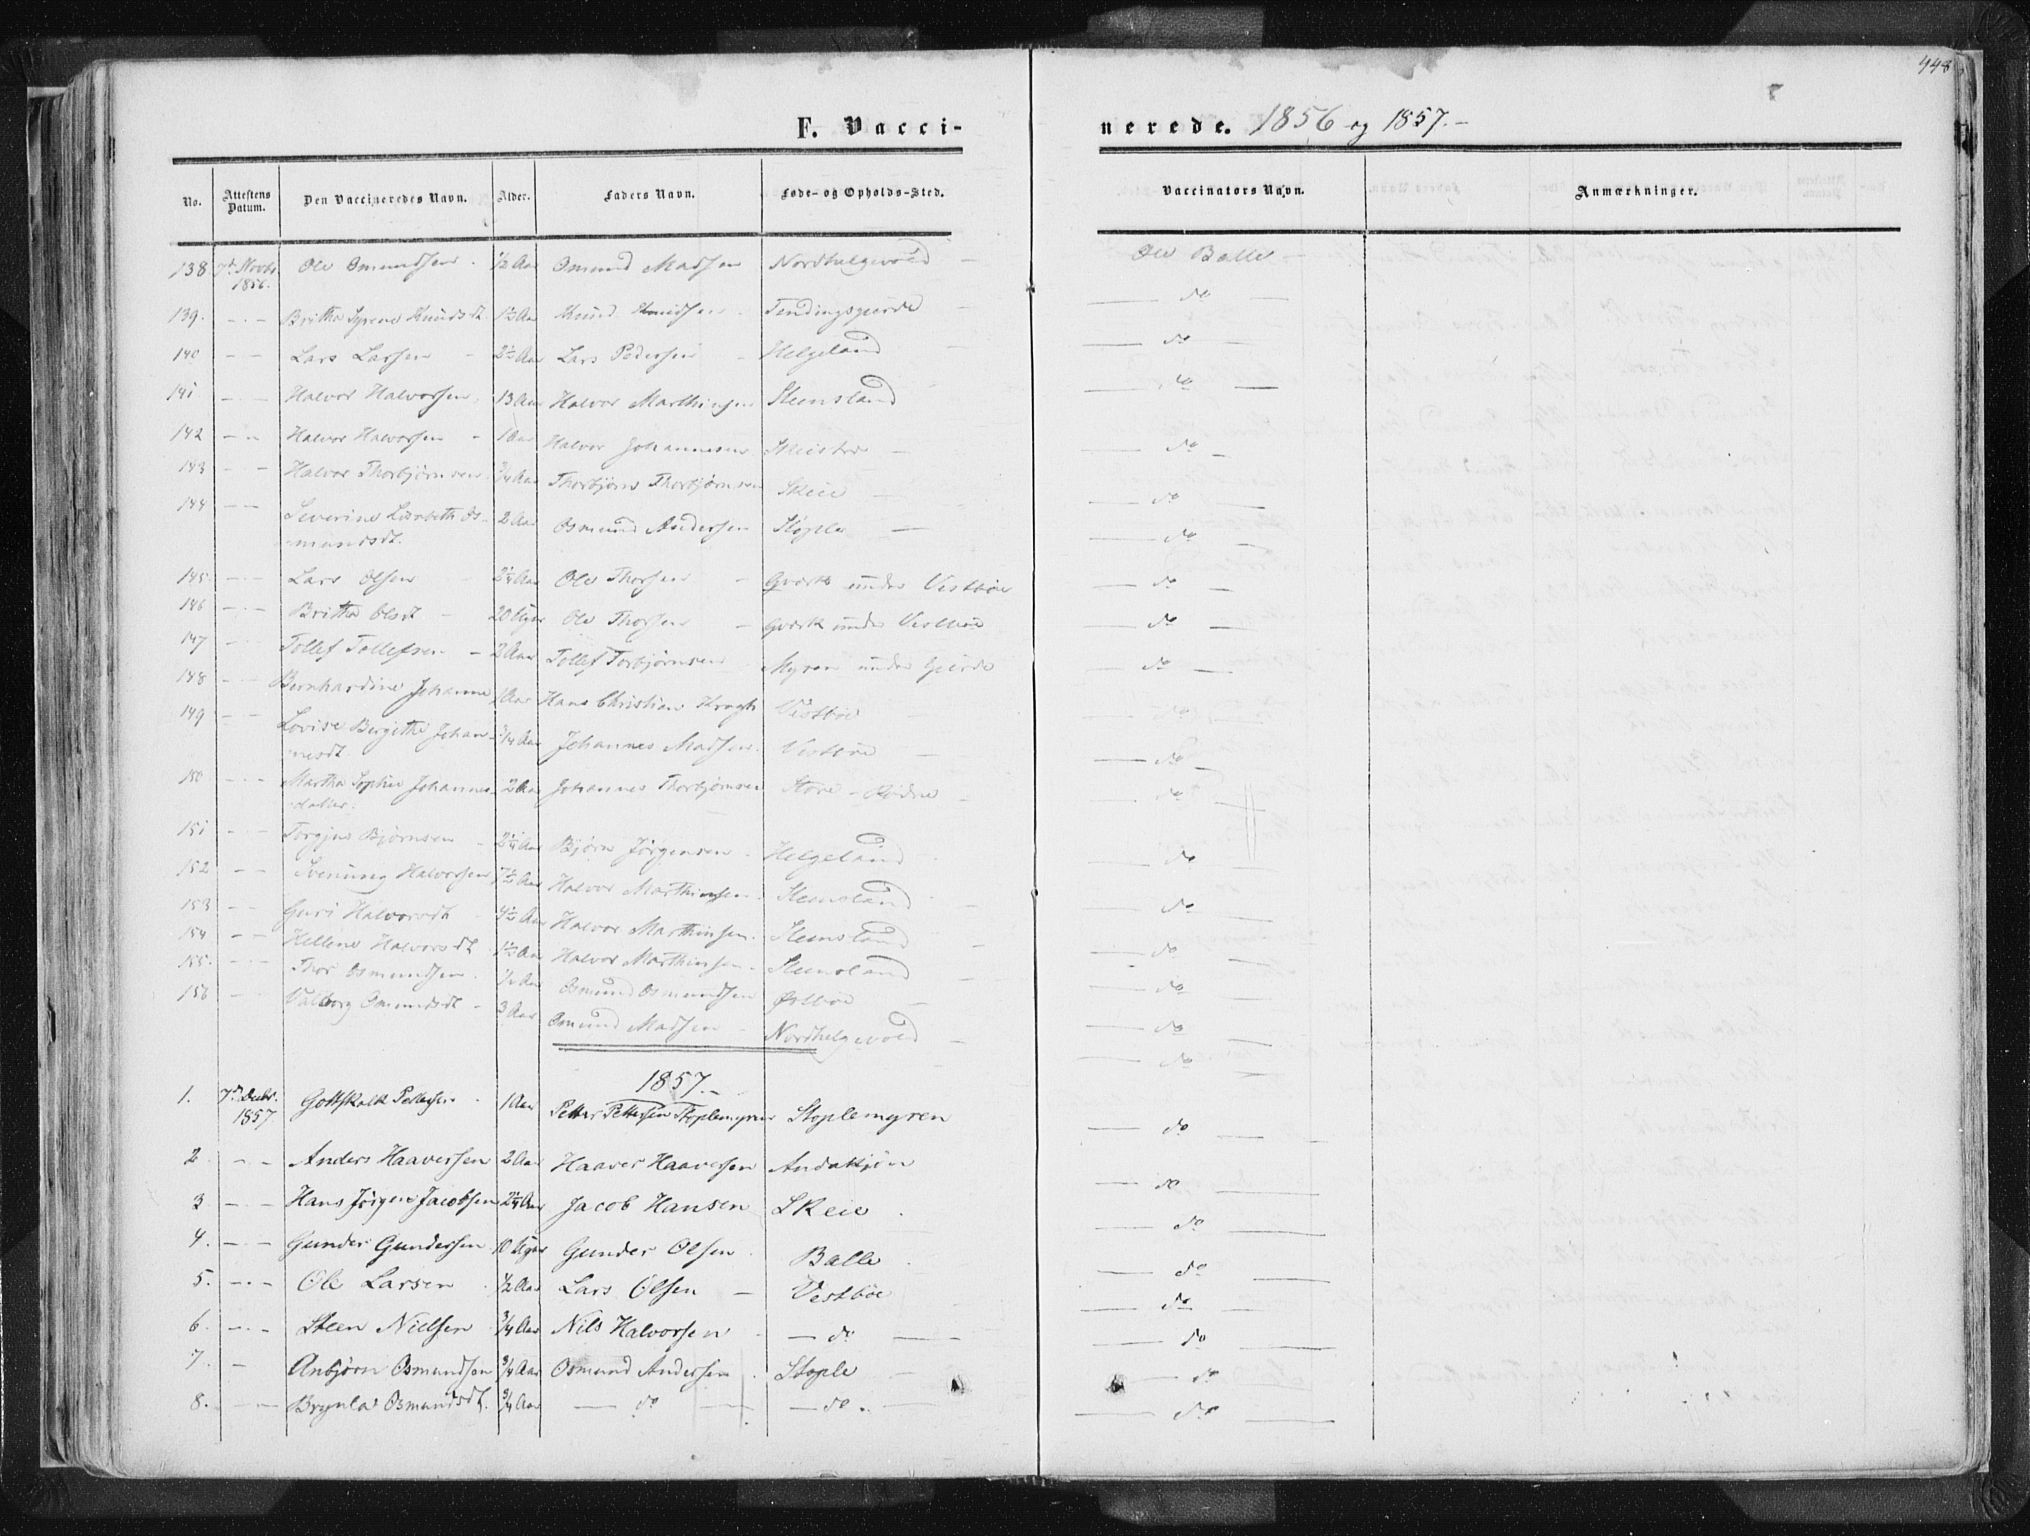 448
F. Vacci- nerede. 1856 og 1857.-
No. Attestens Datum. Den Vaccineredes Navn. Alder. Faders Navn. Føde- og Opholds-Sted. Vaccinators Navn. Anmærkninger.
138 7de Novbr 1856. Ole Omundsen. 1/2 Aar Omund Madsen Nordhelgevold - Ole Balle -
139. - - Britha Syrene Knudsdt. 1 1/2 Aar Knud Knudsen Tendingsgierde - do -
140 - - Lars Larsen - 2 1/2 Aar Lars Pedersen - Helgeland - do -
141 - - Halvor Halvorsen, 13 Aar Halvor Marthinsen Steensland - do -
142 - - Halvor Halvorsen - 1 Aar Halvor Johannesen - do -
143 - - Halvor Thorbjørnsen 3/4 Aar Thorbjørn Thorbjørnsen Skeie - do -
144 - - Severine Lisebeth Os-
mundsdt. 2 Aar Osmund Andersen Stople - do -
145 - - Lars Olsen - 2 1/4 Aar Ole Thorsen - Qværk under Vestbøe - do -
146 - - Britha Olsdt - 20 Uger Ole Thorsen - Qværk under Vestbøe - do -
147 - Tollef Tollefsen - 2 Aar Tollef Torbjørnsen Myren under Gierde - do -
148 - - Bernhardine Johanne 1 Aar Hans Christian Kragh Vestbøe - do -
149 - - Lovise Bergithe Johan-
nesdt 3/4 Aar Johannes Madsen. Vestbøe - do -
150 - - Martha Sophie Johannes-
datter. 2 Aar Johannes Thorbjørnsen Store-Rødne - do -
151 - - Torgjus Bjørnsen - 2 1/4 Aar Bjørn Jørgensen. Helgeland - do -
152 - - Svenung Halvorsen 7 1/2 Aar Halvor Marthinsen. Steensland - do -
153 - - Guri Halvorsdt 4 1/2 Aar Halvor Marthinsen. Steensland - do -
154 - - Hellene Halvorsdt 1 1/2 Aar Halvor Marthinsen. Steensland - do -
155. - - Thor Osmundsen. 1/2 Aar Osmund Osmundsen Østbøe - do -
156 - - Valborg Omundsdt - 3 Aar Omund Madsen - Nordhelgevold - do -
1857.-
1. 7de Decbr. 1857 Gottskalk Pettersen. 1 Aar Petter Pettersen Stoplemyren Stoplemyren - do -
2 - - Anders Haaversen 2 Aar Haaver Haaversen Andakjøn - do -
3 - - Hans Jørgen Jacobsen 2 1/4 Aar Jacob Hansen Skeie. - do -
4. - - Gunder Gundersen 10 Uger Gunder Olsen. Balle. - do -
5. - - Ole Larsen. 1/2 Aar Lars Olsen - Vestbøe - do -
6. - - Steen Nielsen 3/4 Aar Nils Halvorsen - - do - - do -
7. - Anbjørn Osmundsen 3/4 Aar Osmund Andersen. Stople - do -
8. - - Brynla Osmundsdt. 3/4 Aar - do - - do. - - do -